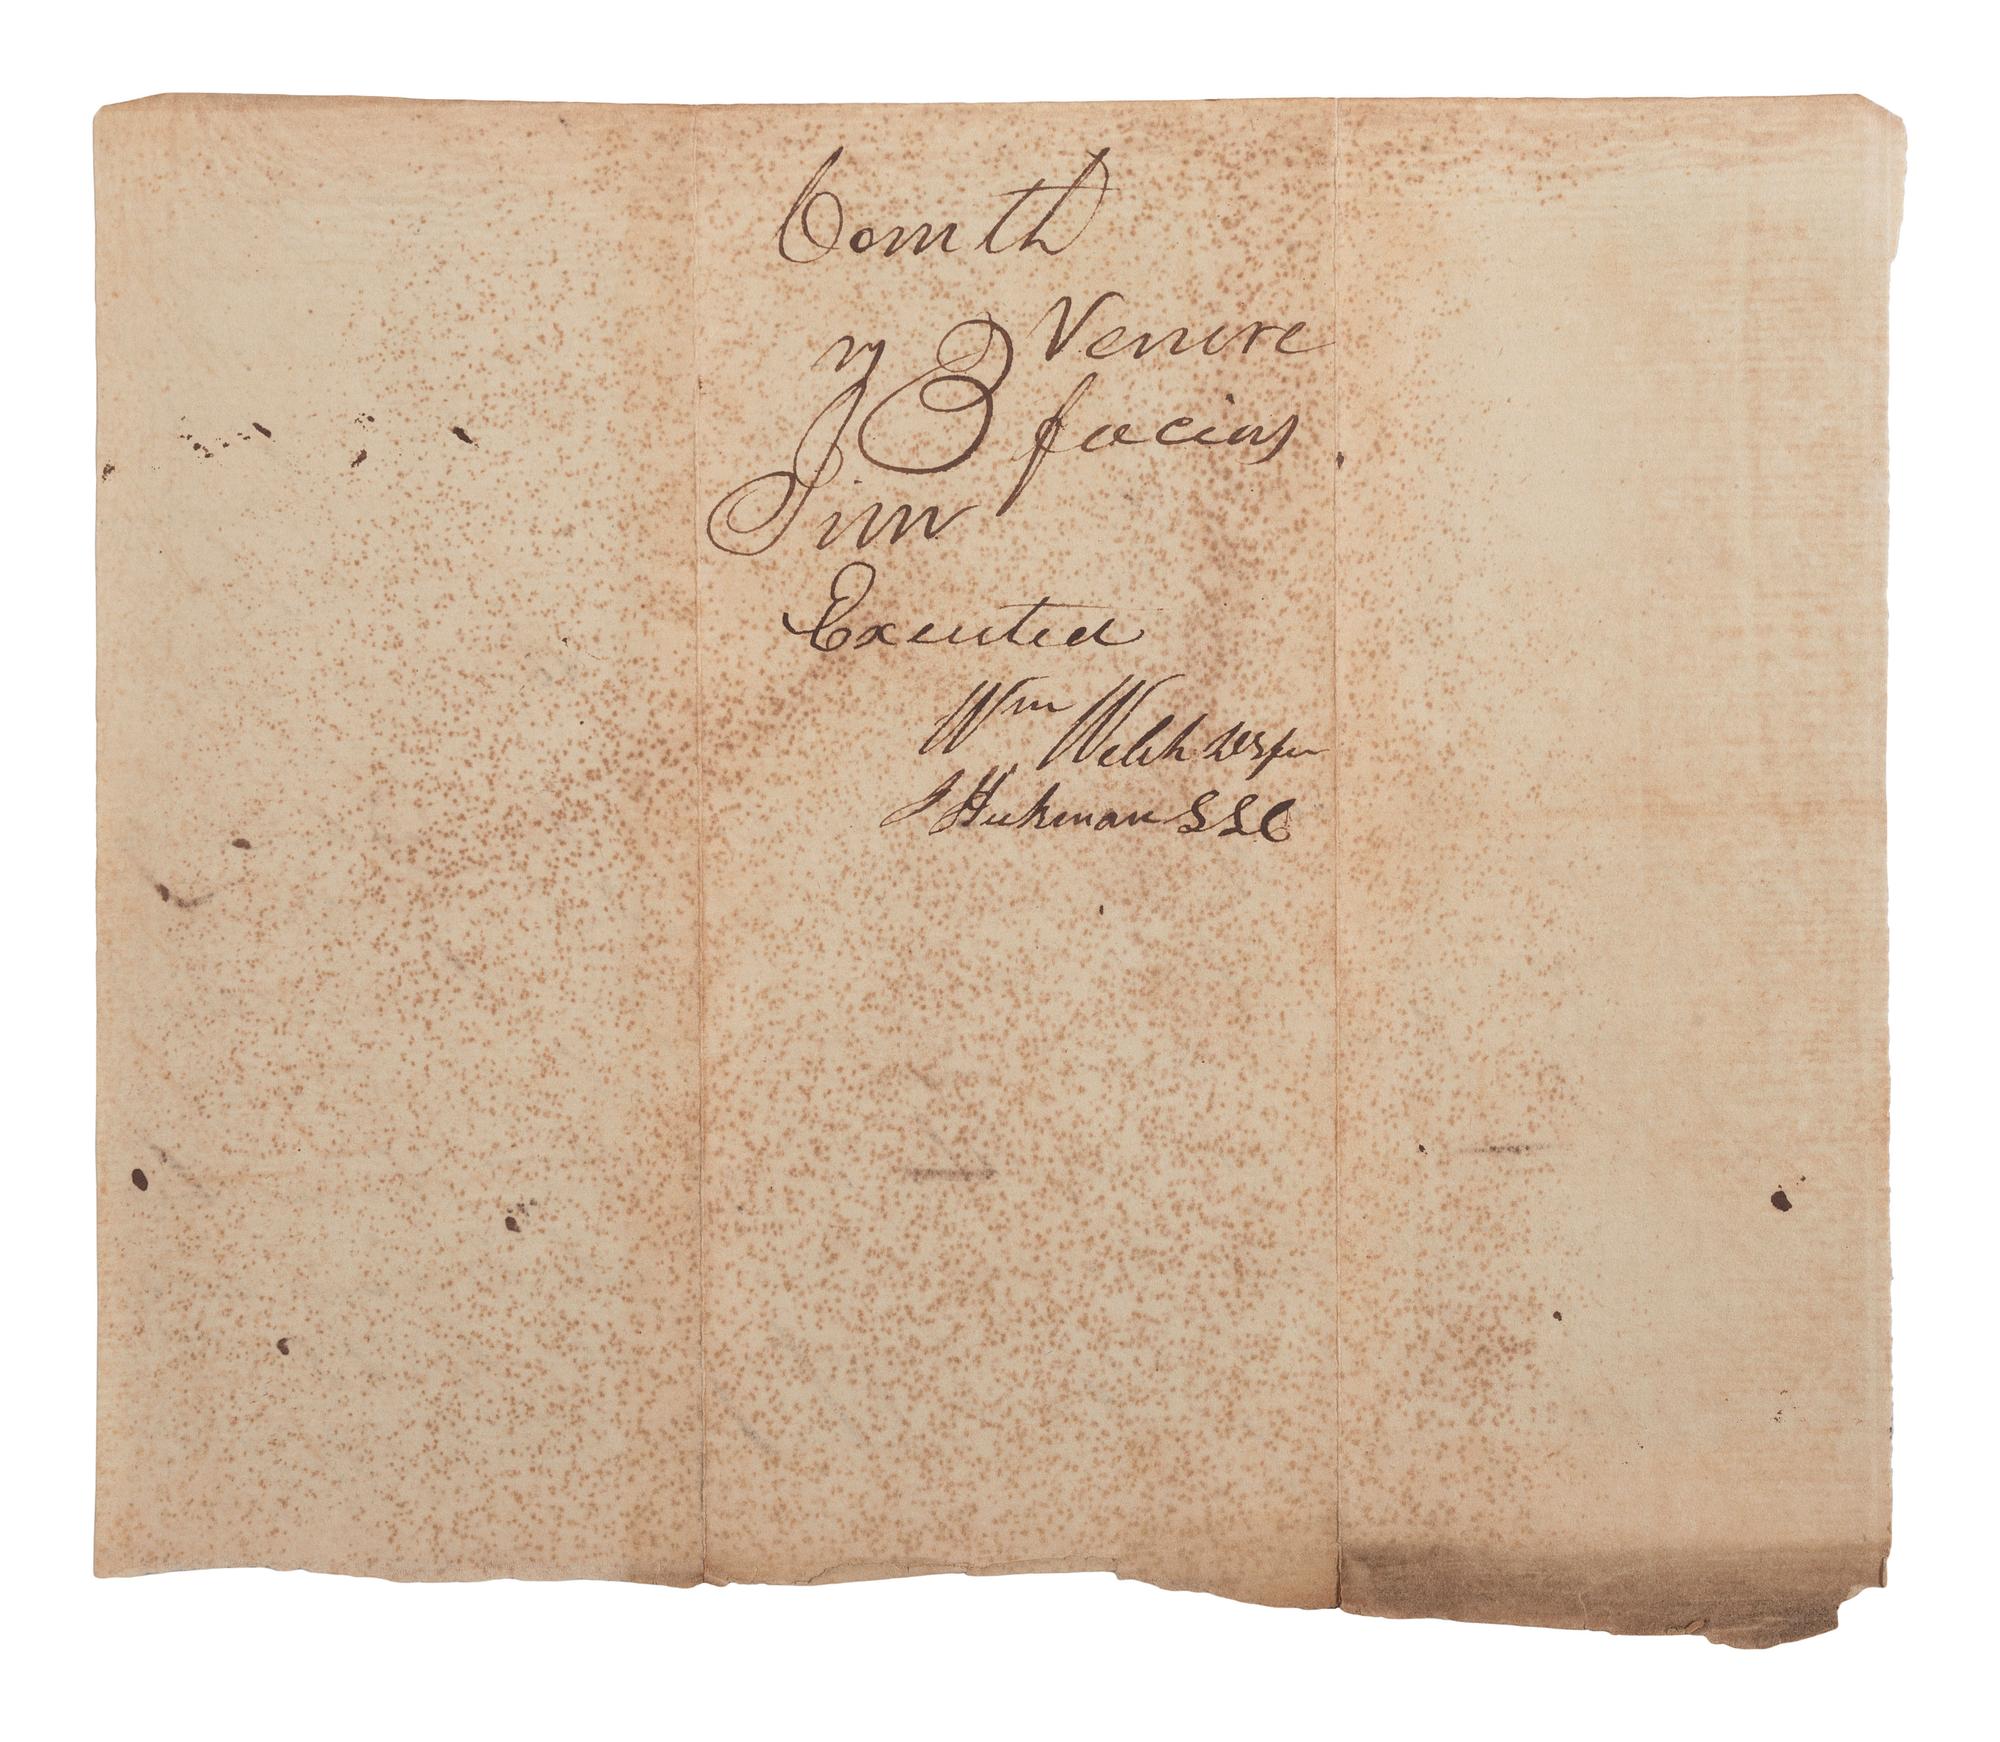 Comth
vs } Venire
facias
Jim
Executed
Wm Welch DS for
J Hickman SSC